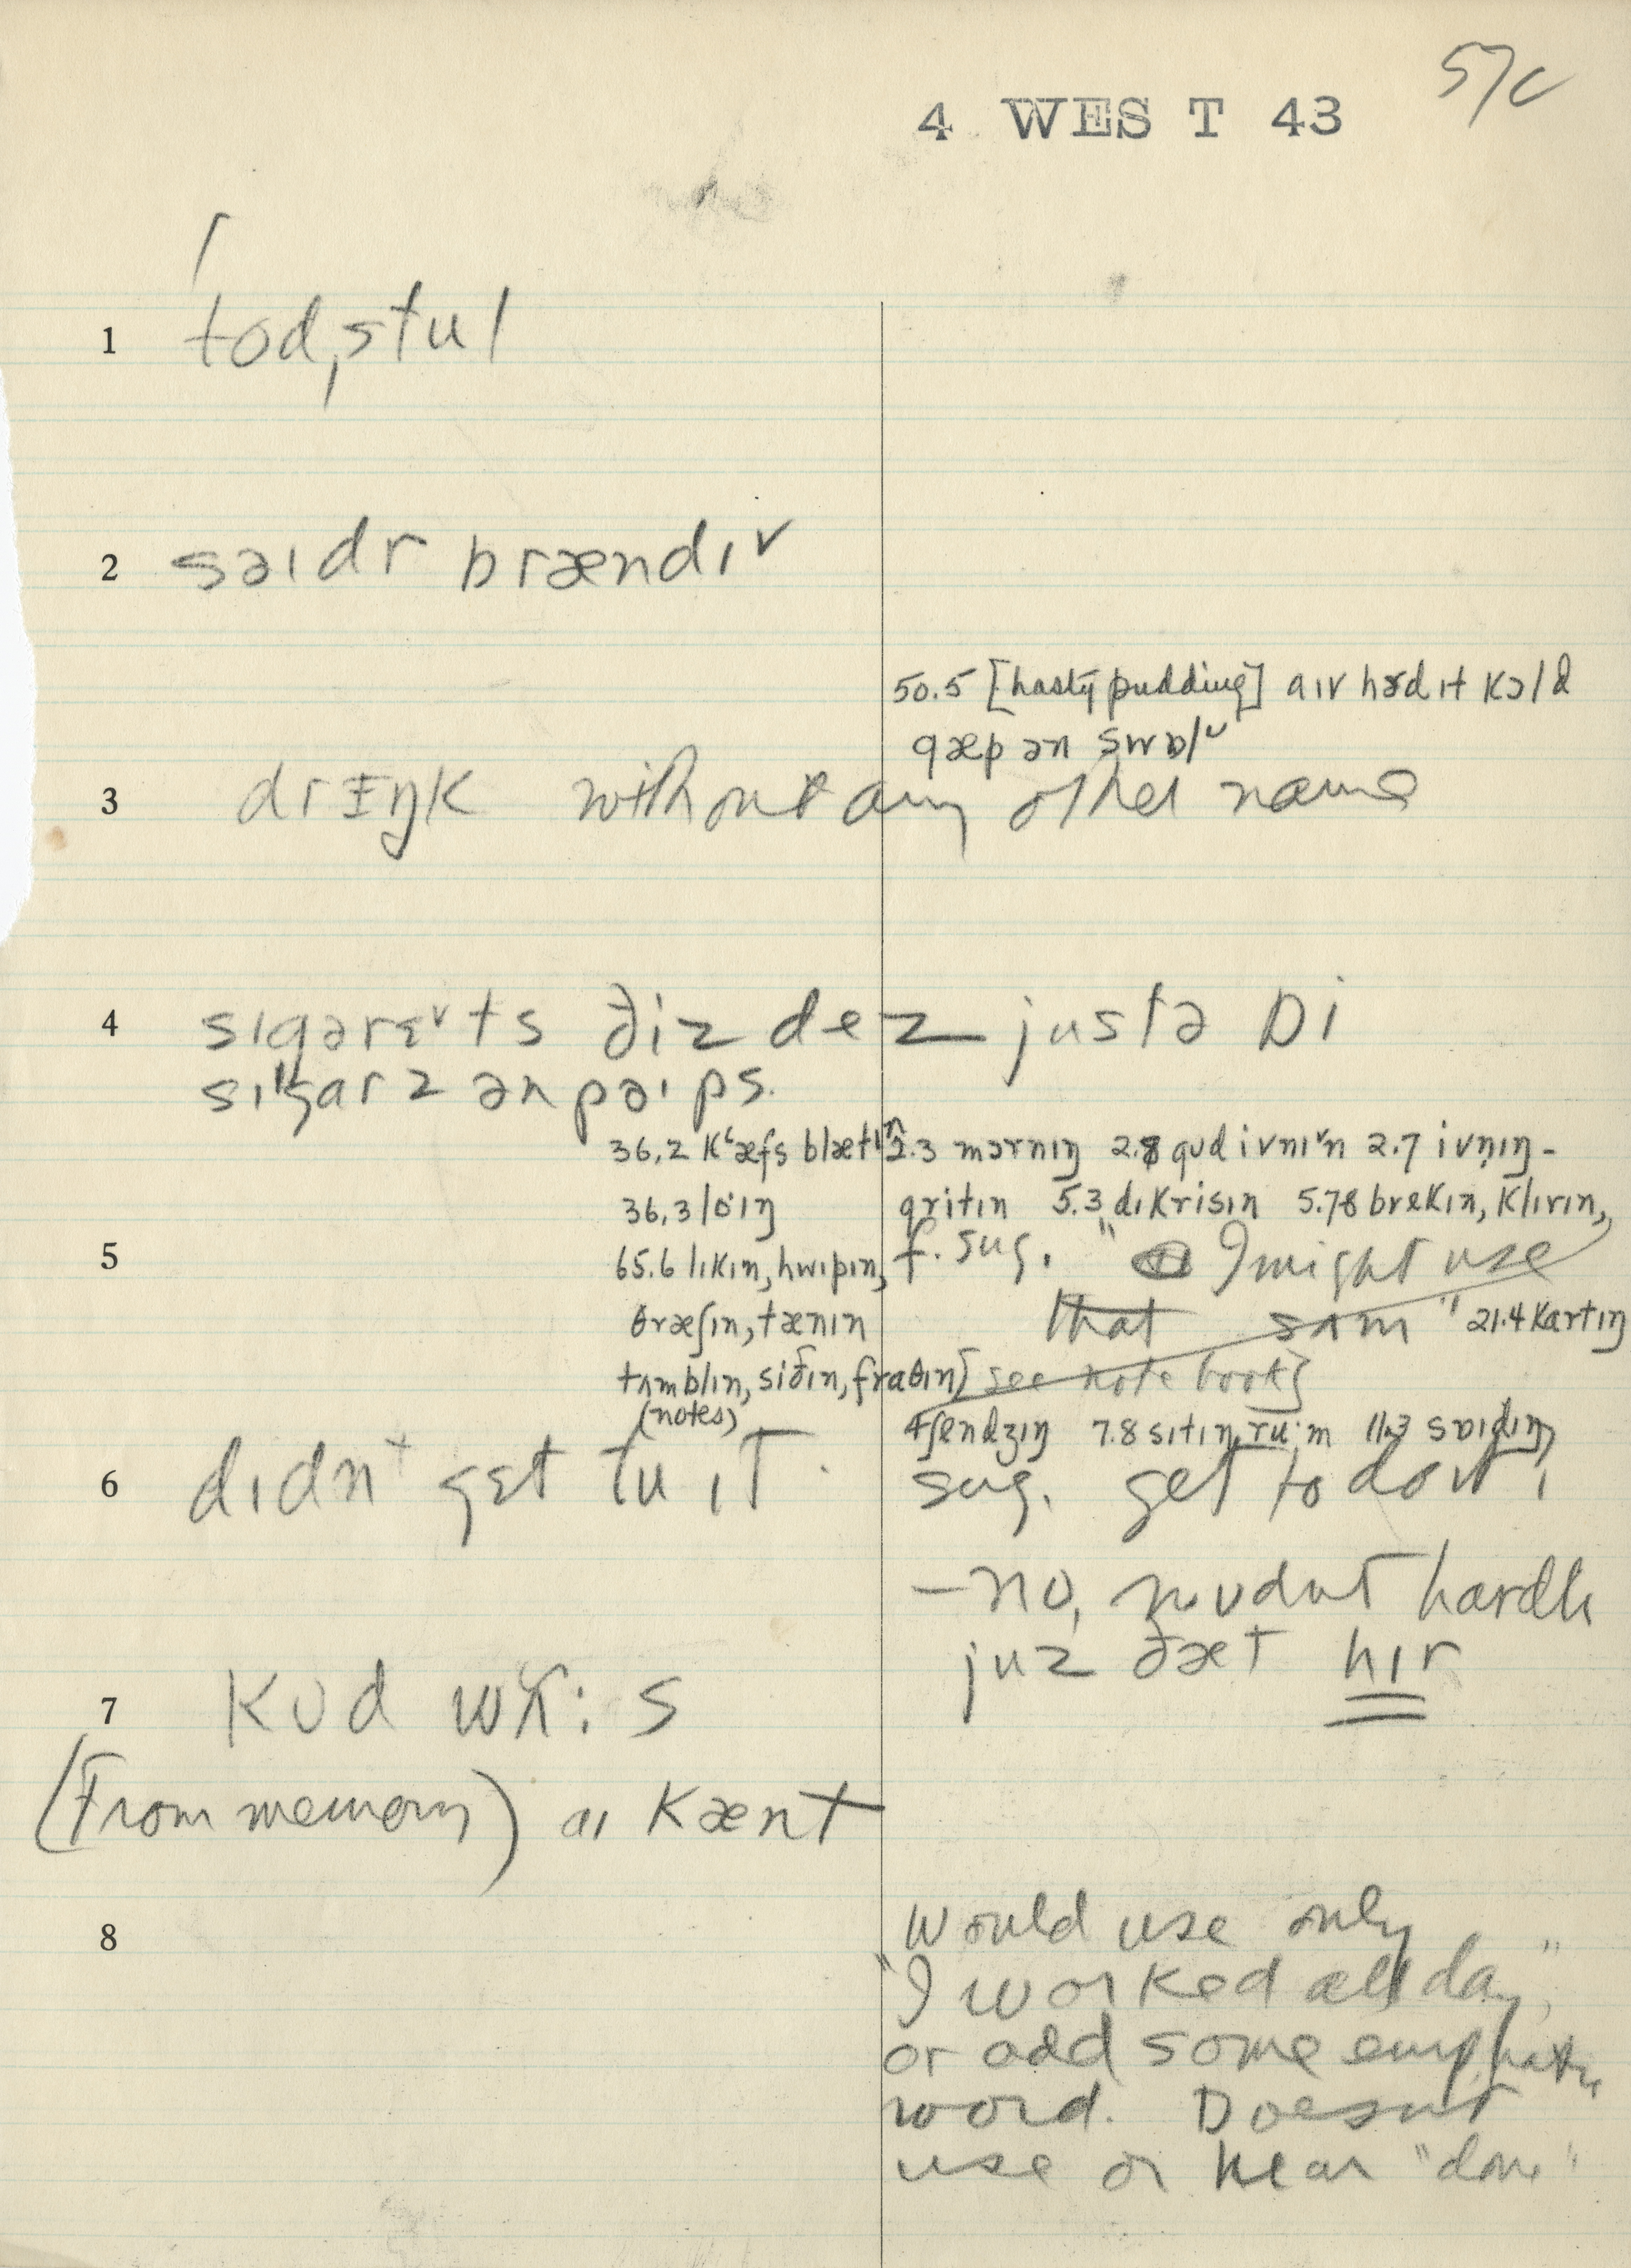 57c
4 WEST 43
1 ˈtodˌstul
2 səɪdr brændɪ˅
50.5 [hasty pudding] aɪv hɜd ɪt kɔld
gæp ən swɒl
3 drɪŋk without any other name
4 sɪgərɛ˅ts ðiz dez justə bi
ən pəɪps.
36.2 kʻæfs blætɪn 2.3 mɔrnɪŋ 2.8 gud ivnɪ˅n 2.7 ivnɪŋ-
36.3 lóɪŋ gritɪn 5.3 dɪkrisɪn 5.78 brekɪn, klɪrɪn,
5 65.6 lɪkɪn, hwɪpɪn, f. sug. " I might use
θræʃɪn, tænɪn that sʌm" 21.4 kartɪŋ
tʌmblɪn, siðɪn, frɑθɪn [see notebook]
(notes) 4 ʃendʒɪŋ 7.8 sɪtɪn ru:m 11.3 sɒɪdɪŋ
6 dɪdnt gɛt tu ɪt. sug. get to do it,
- no, wudnt hardlɪ
juz ðæt hɪr
7 kud
(From memory) aɪ kænt
8 Would use only
"I worked all day,"
or add some emphatic
word. Doesn't
use or hear "done"